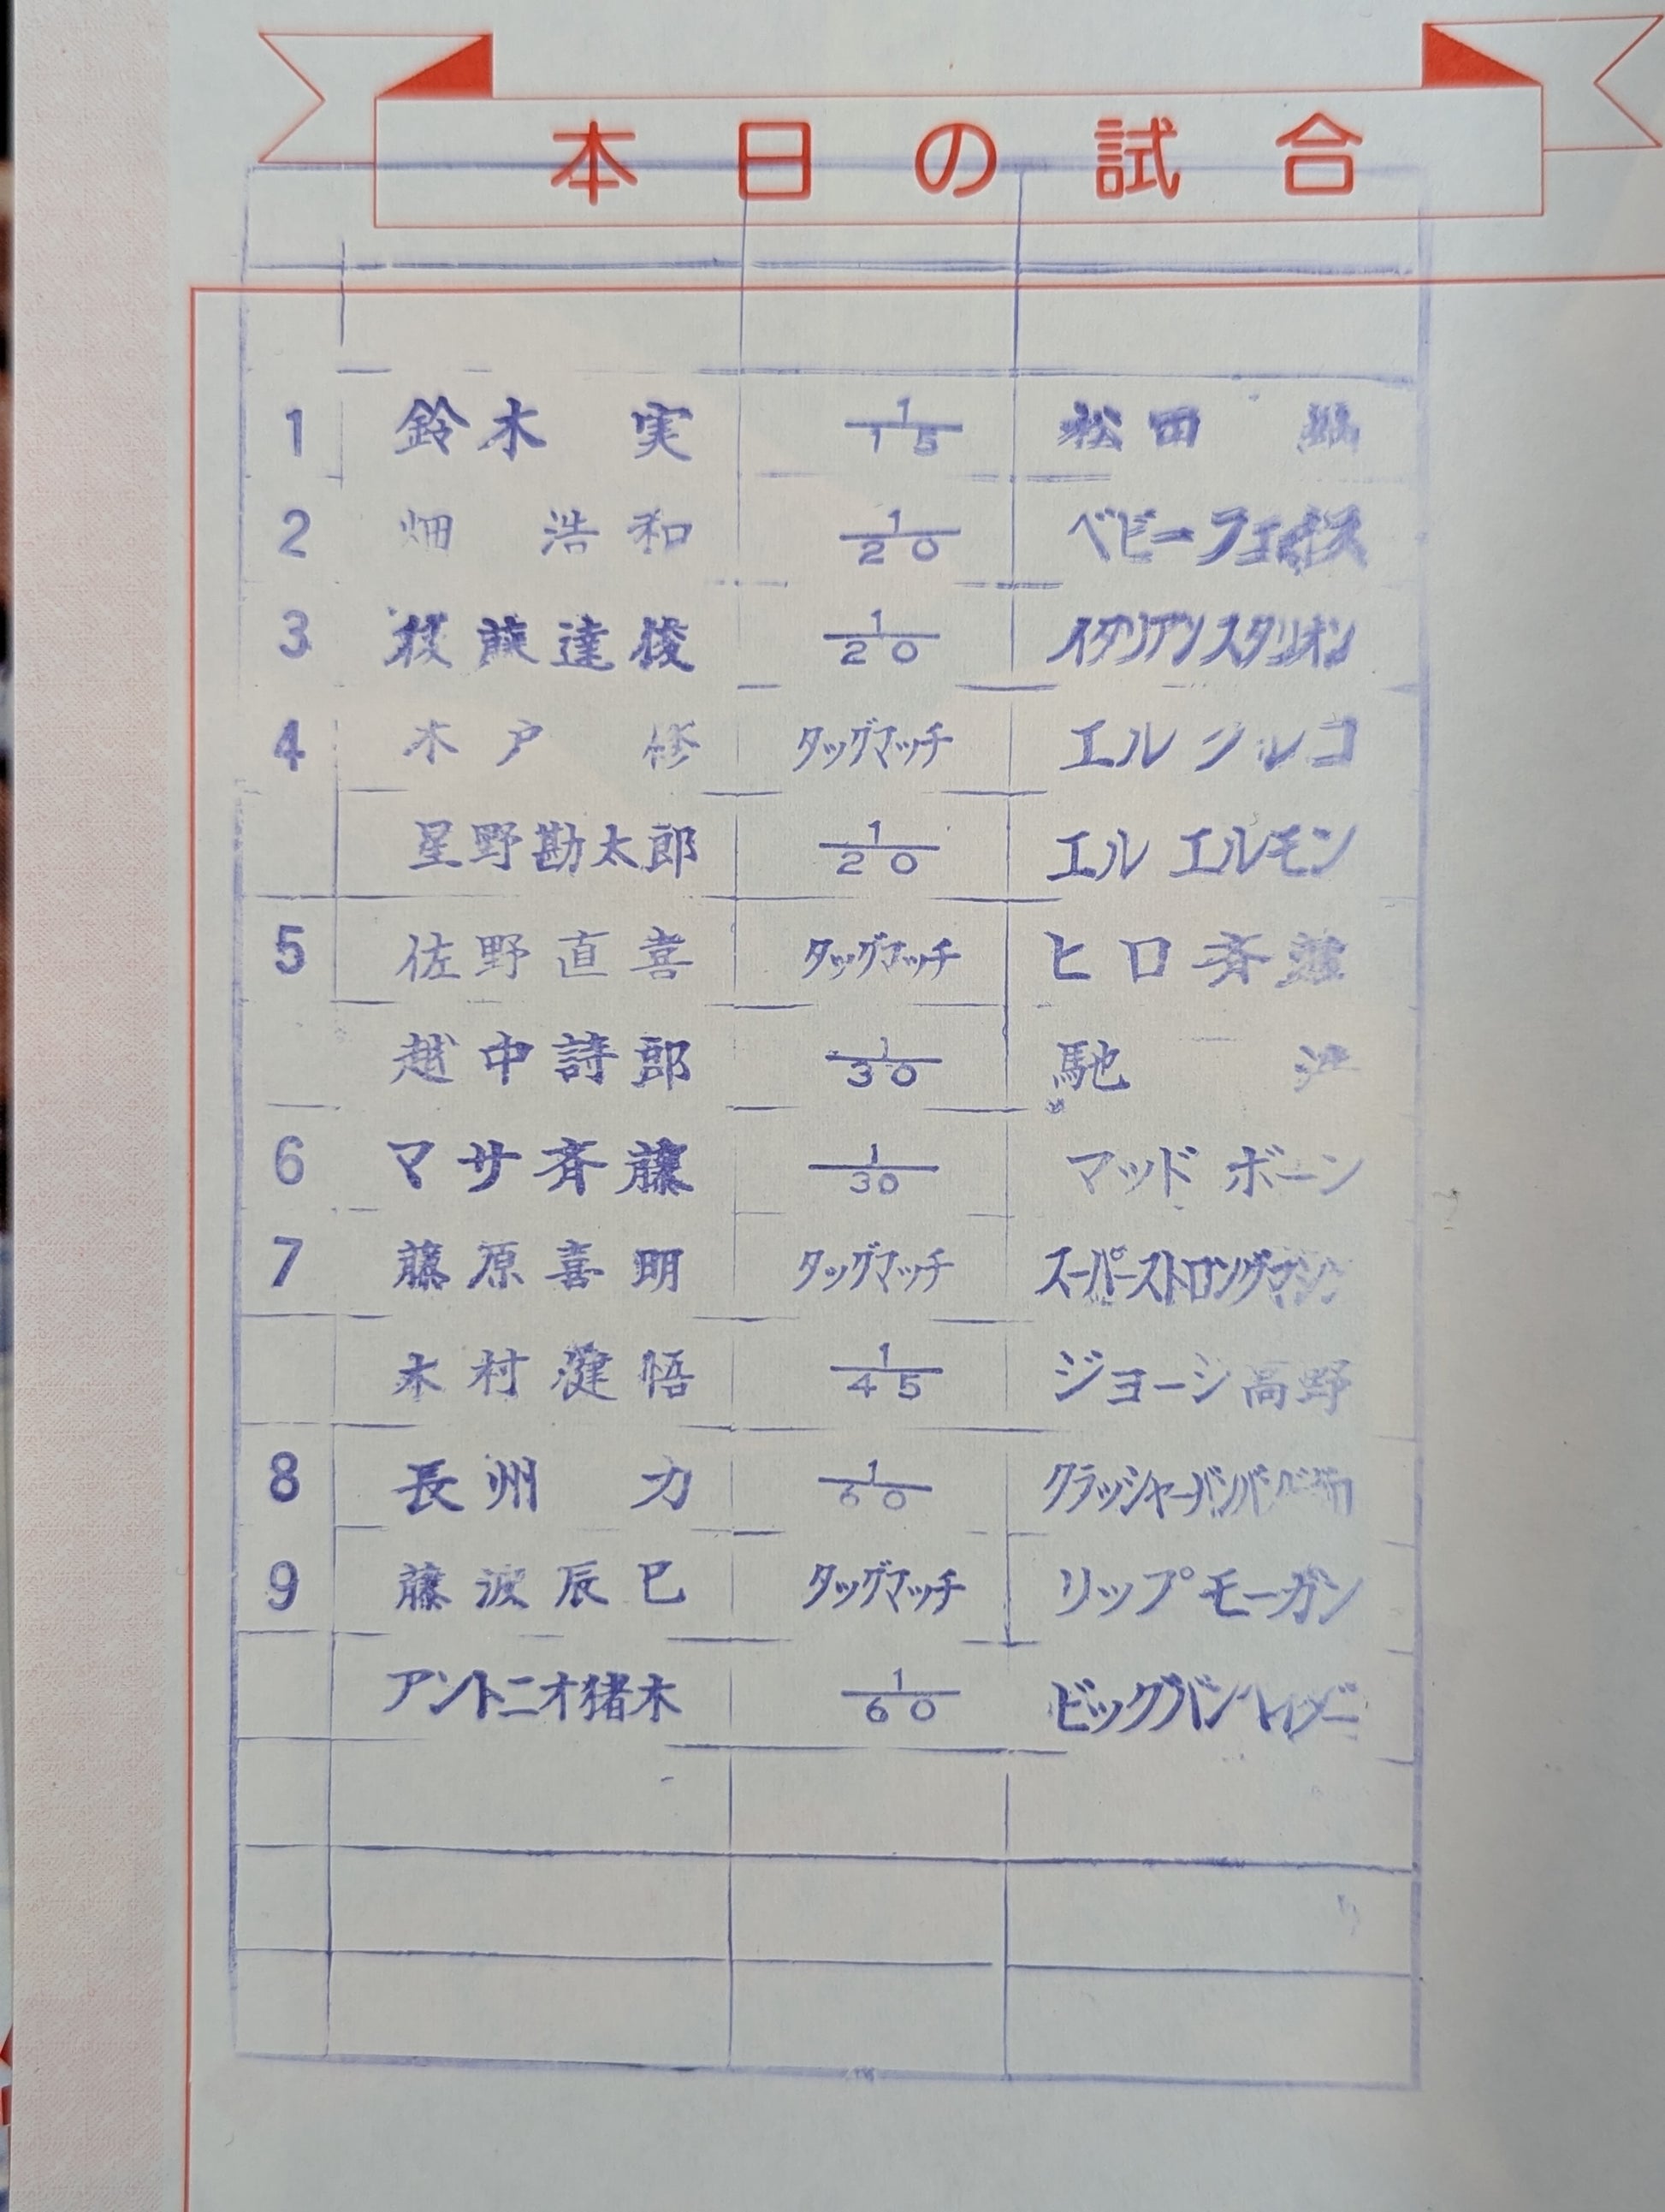 本日の試合
1 鈴木 実 1/15 松田
2 畑 浩和 1/20 ベビーフェイス
3 後藤達俊 1/20 イタリアンスタリオン
4 木戸 修 タッグマッチ エル
星野勘太郎 1/20 エル エルモン
5 佐野直喜 タッグマッチ ヒロ斉藤
越中詩郎 1/30 馳 浩
6 マサ斉藤 1/30 マッド ボーン
7 藤原喜明 タッグマッチ スーパーストロングマシン
木村健悟 1/45 ジョージ高野
8 長州 力 1/60 クラッシャーバンバン
9 藤波辰巳 タッグマッチ リップ モーガン
アントニオ猪木 1/60 ビックバンベイダー